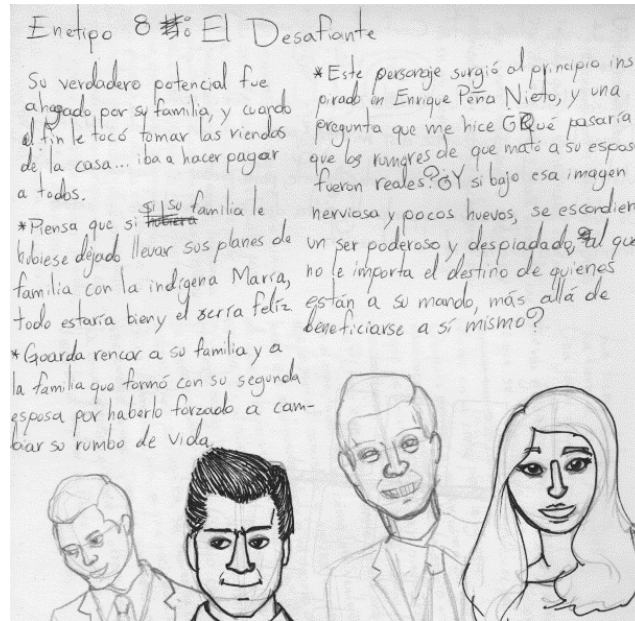 Enetipo 8 : El Desafiante
Su verdadero potencial fue
ahogado por su familia, y cuando
al fin le tocó tomar las riendas
de la casa... iba a hacer pagar
a todos.
*Piensa que si si su familia le
hubiese dejado llevar sus planes de
familia con la indígena María,
todo estaría bien y el sería feliz
*Guarda rencor a su familia y a
la familia que formó con su segunda
esposa por haberlo forzado a cam-
biar su rumbo de vida.
*Este personaje surgió al principio ins-
pirado en Enrique Peña Nieto, y una
pregunta que me hice ¿Qué pasaría
que los rumores de que mató a su esposa
fueron reales? ¿Y si bajo esa imagen
nerviosa y pocos huevos, se escondiera
un ser poderoso y despiadado, al que
no le importa el destino de quienes
están a su mando, más allá de
beneficiarse a sí mismo?